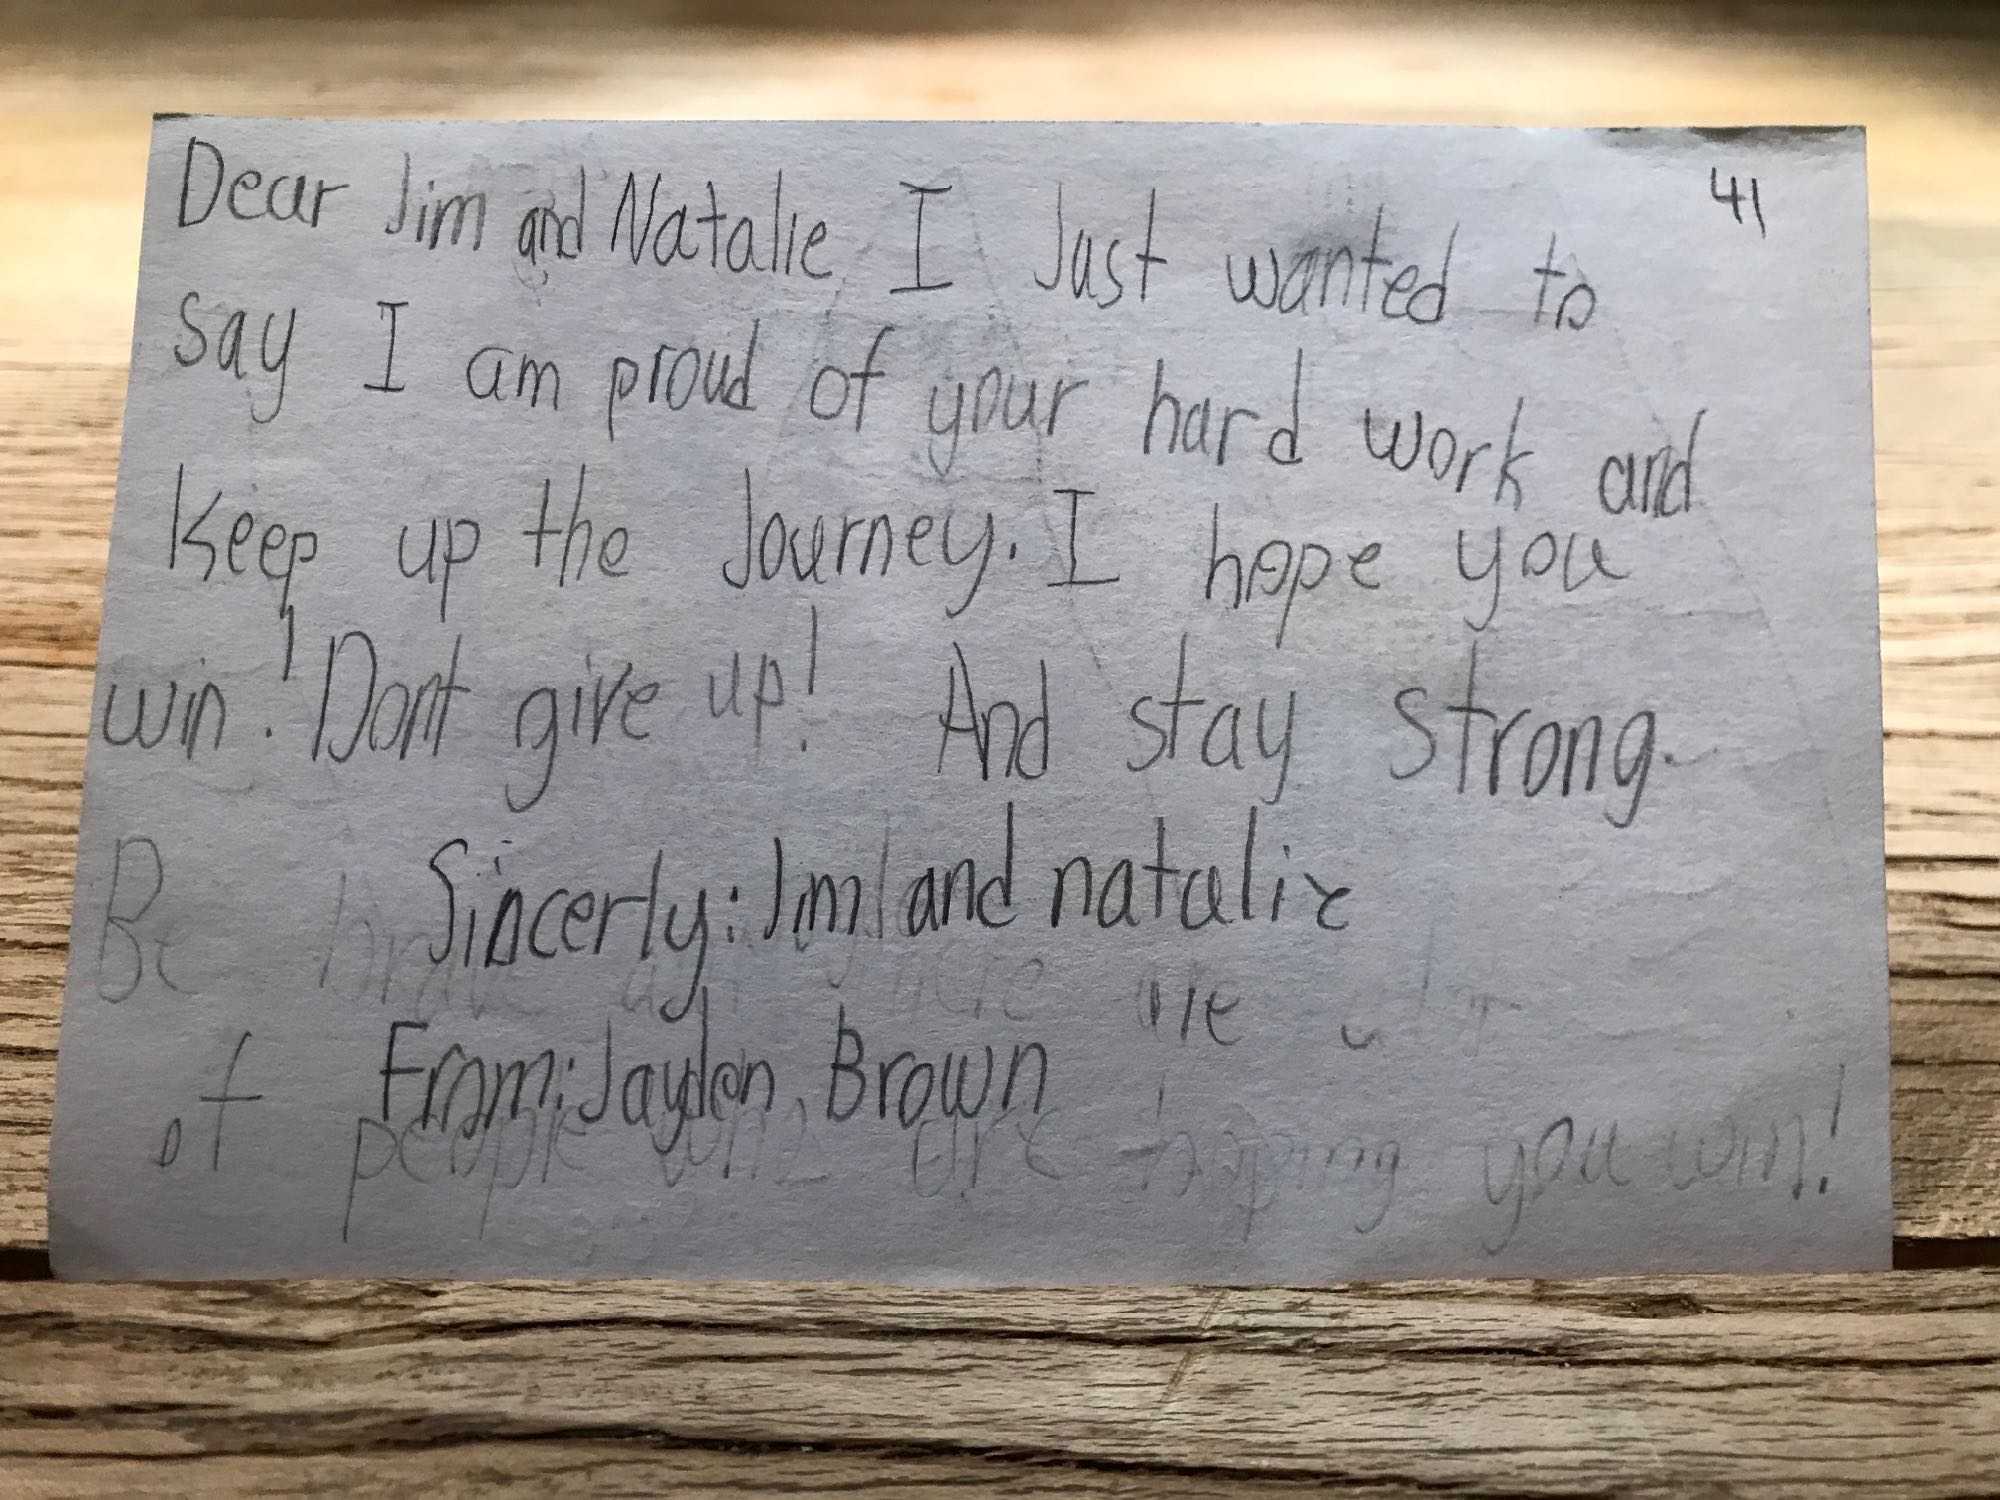 41
Dear Jim and Natalie I Just wanted to
say I am proud of your hard work and
Keep up the Journey. I hope you
win! Dont give up! And stay strong.
Sincerly: Jim and natalie
Be brave
From: Jayden Brown
of people are hoping you win!